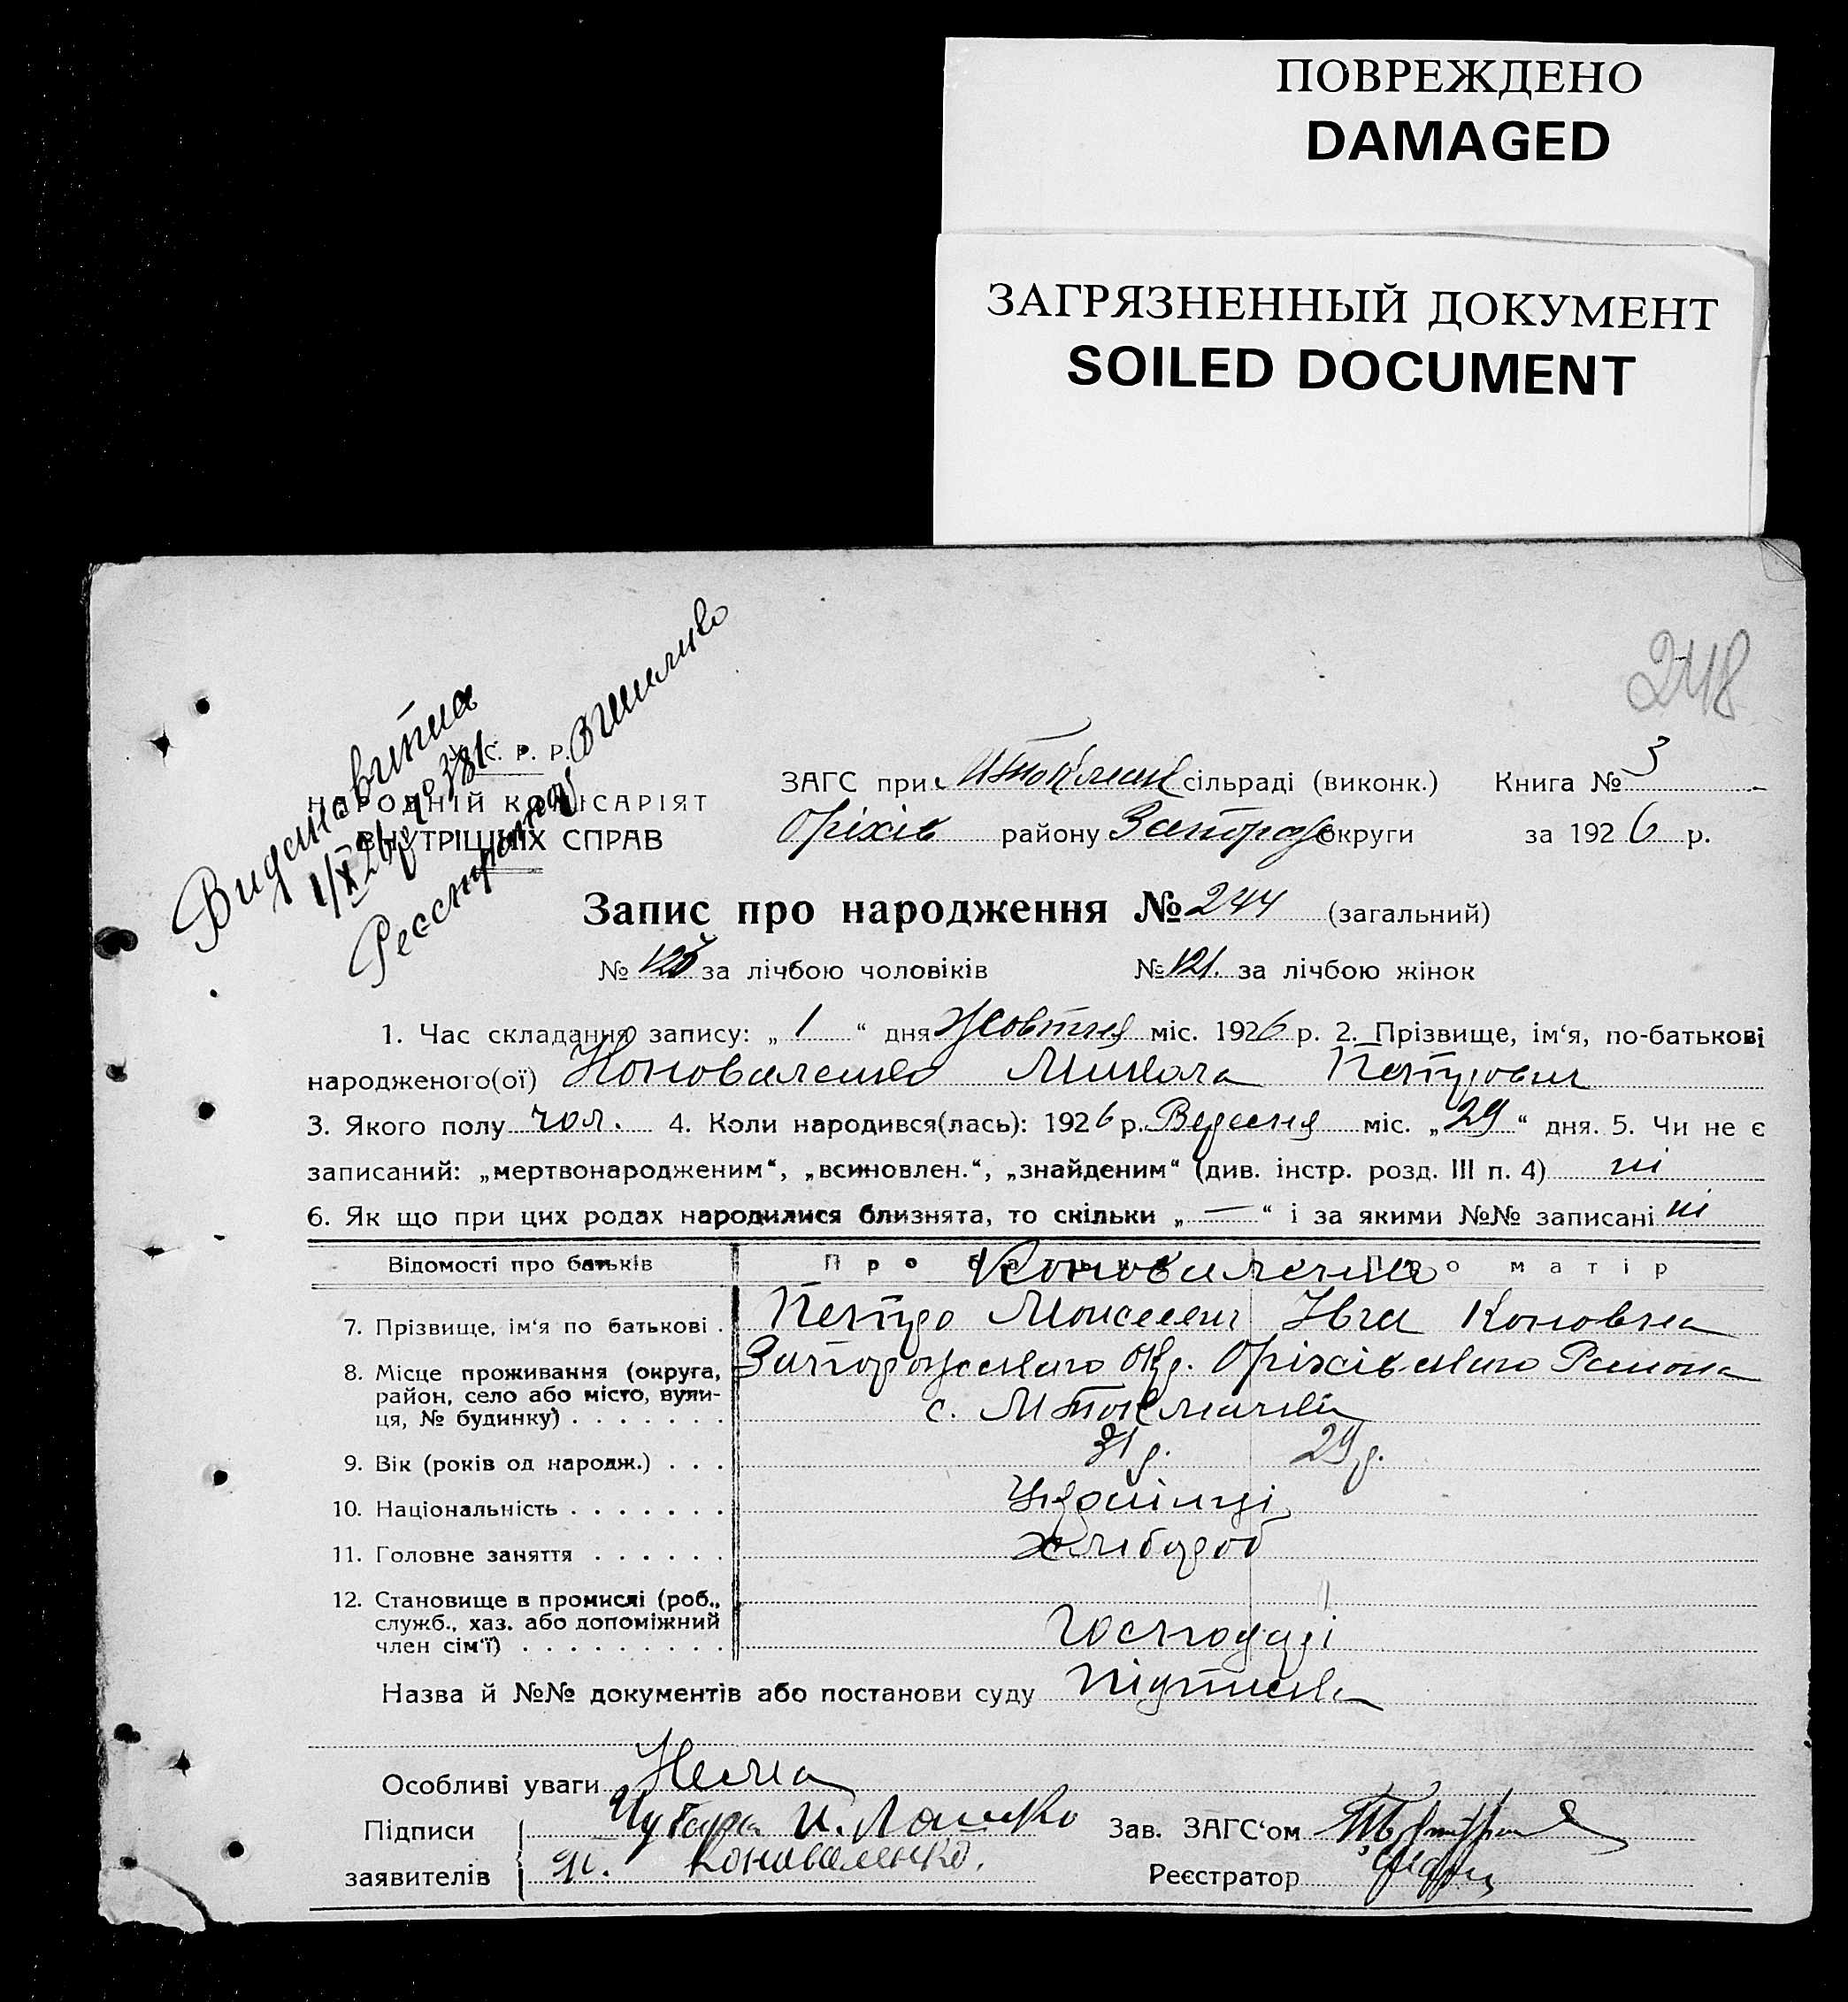 ПОВРЕЖДЕНО
DAMAGED
ЗАГРЯЗНЕННЫЙ ДОКУМЕНТ
SOILED DOCUMENT
248
Видана витка
1/X 26 р № 381
У. С. Р. Р.
НАРОДНІЙ КОМІСАРІЯТ
ВНУТРІШНІХ СПРАВ
ЗАГС при МТокмац сільраді (виконк.) Книга № 3
Оріхів району Запорож округи за 1926 р.
Запис про народження № 244 (загальний)
№ за лічбою чоловіків № 121. за лічбою жінок
1. Час складання запису: „ 1 “ дня Жовтня міс. 1926 р. 2. Прізвище, ім‘я, по-батькові
народженого(ої) Коноваленко Микола Петрович
3. Якого полу чол. 4. Коли народився(лась): 1926 р. Вересня міс. „29“ дня. 5. Чи не є
записаний: „мертвонародженим“, „всиновлен.“, „знайденим“ (див. інстр. розд. III п. 4) ні
6. Як що при цих родах народилися близнята, то скільки „—“ і за якими №№ записані ні
Відомості про батьків Про батька Про матір
Коноваленко
7. Прізвище, ім‘я по батькові . Петро Мойсеев Івга Коновна
8. Місце проживання (округа, Запорожського Окр. Оріхівського Района
район, село або місто, вули-
ця, № будинку) . . . . . . . с. МТокмачка
9. Вік (років од народж.) . . . 31 р. 29 р.
10. Національність . . . . . . . Українці
11. Головне заняття . . . . . . хлібороб
12. Становище в промислі (роб.,
служб., хаз. або допоміжний
член сім‘ї) . . . . . . . . . Господарі
Назва й №№ документів або постанови суду підписка
Особливі уваги Нема
Підписи Чубара И. Лашко Зав. ЗАГС‘ом
заявителів Коноваленко. Реєстратор